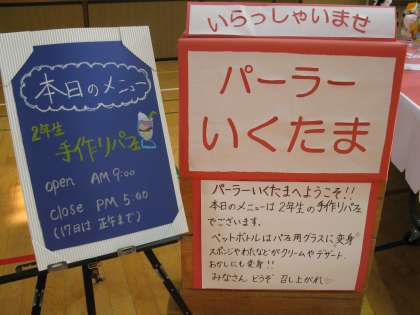 本日のメニュー
2年生
手作りパフェ
open AM 9:00
close PM 5:00
(17日は 正午まで)
いらっしゃいませ
パーラー
いくたま
パーラーいくたまへようこそ!!
本日のメニューは2年生の手作りパフェ
でございます.
ペットボトルはパフェ用グラスに変身
スポンジやわたなどがクリームやデザート.
おかしにも変身!!
みなさん どうぞ 召し上がれ♡